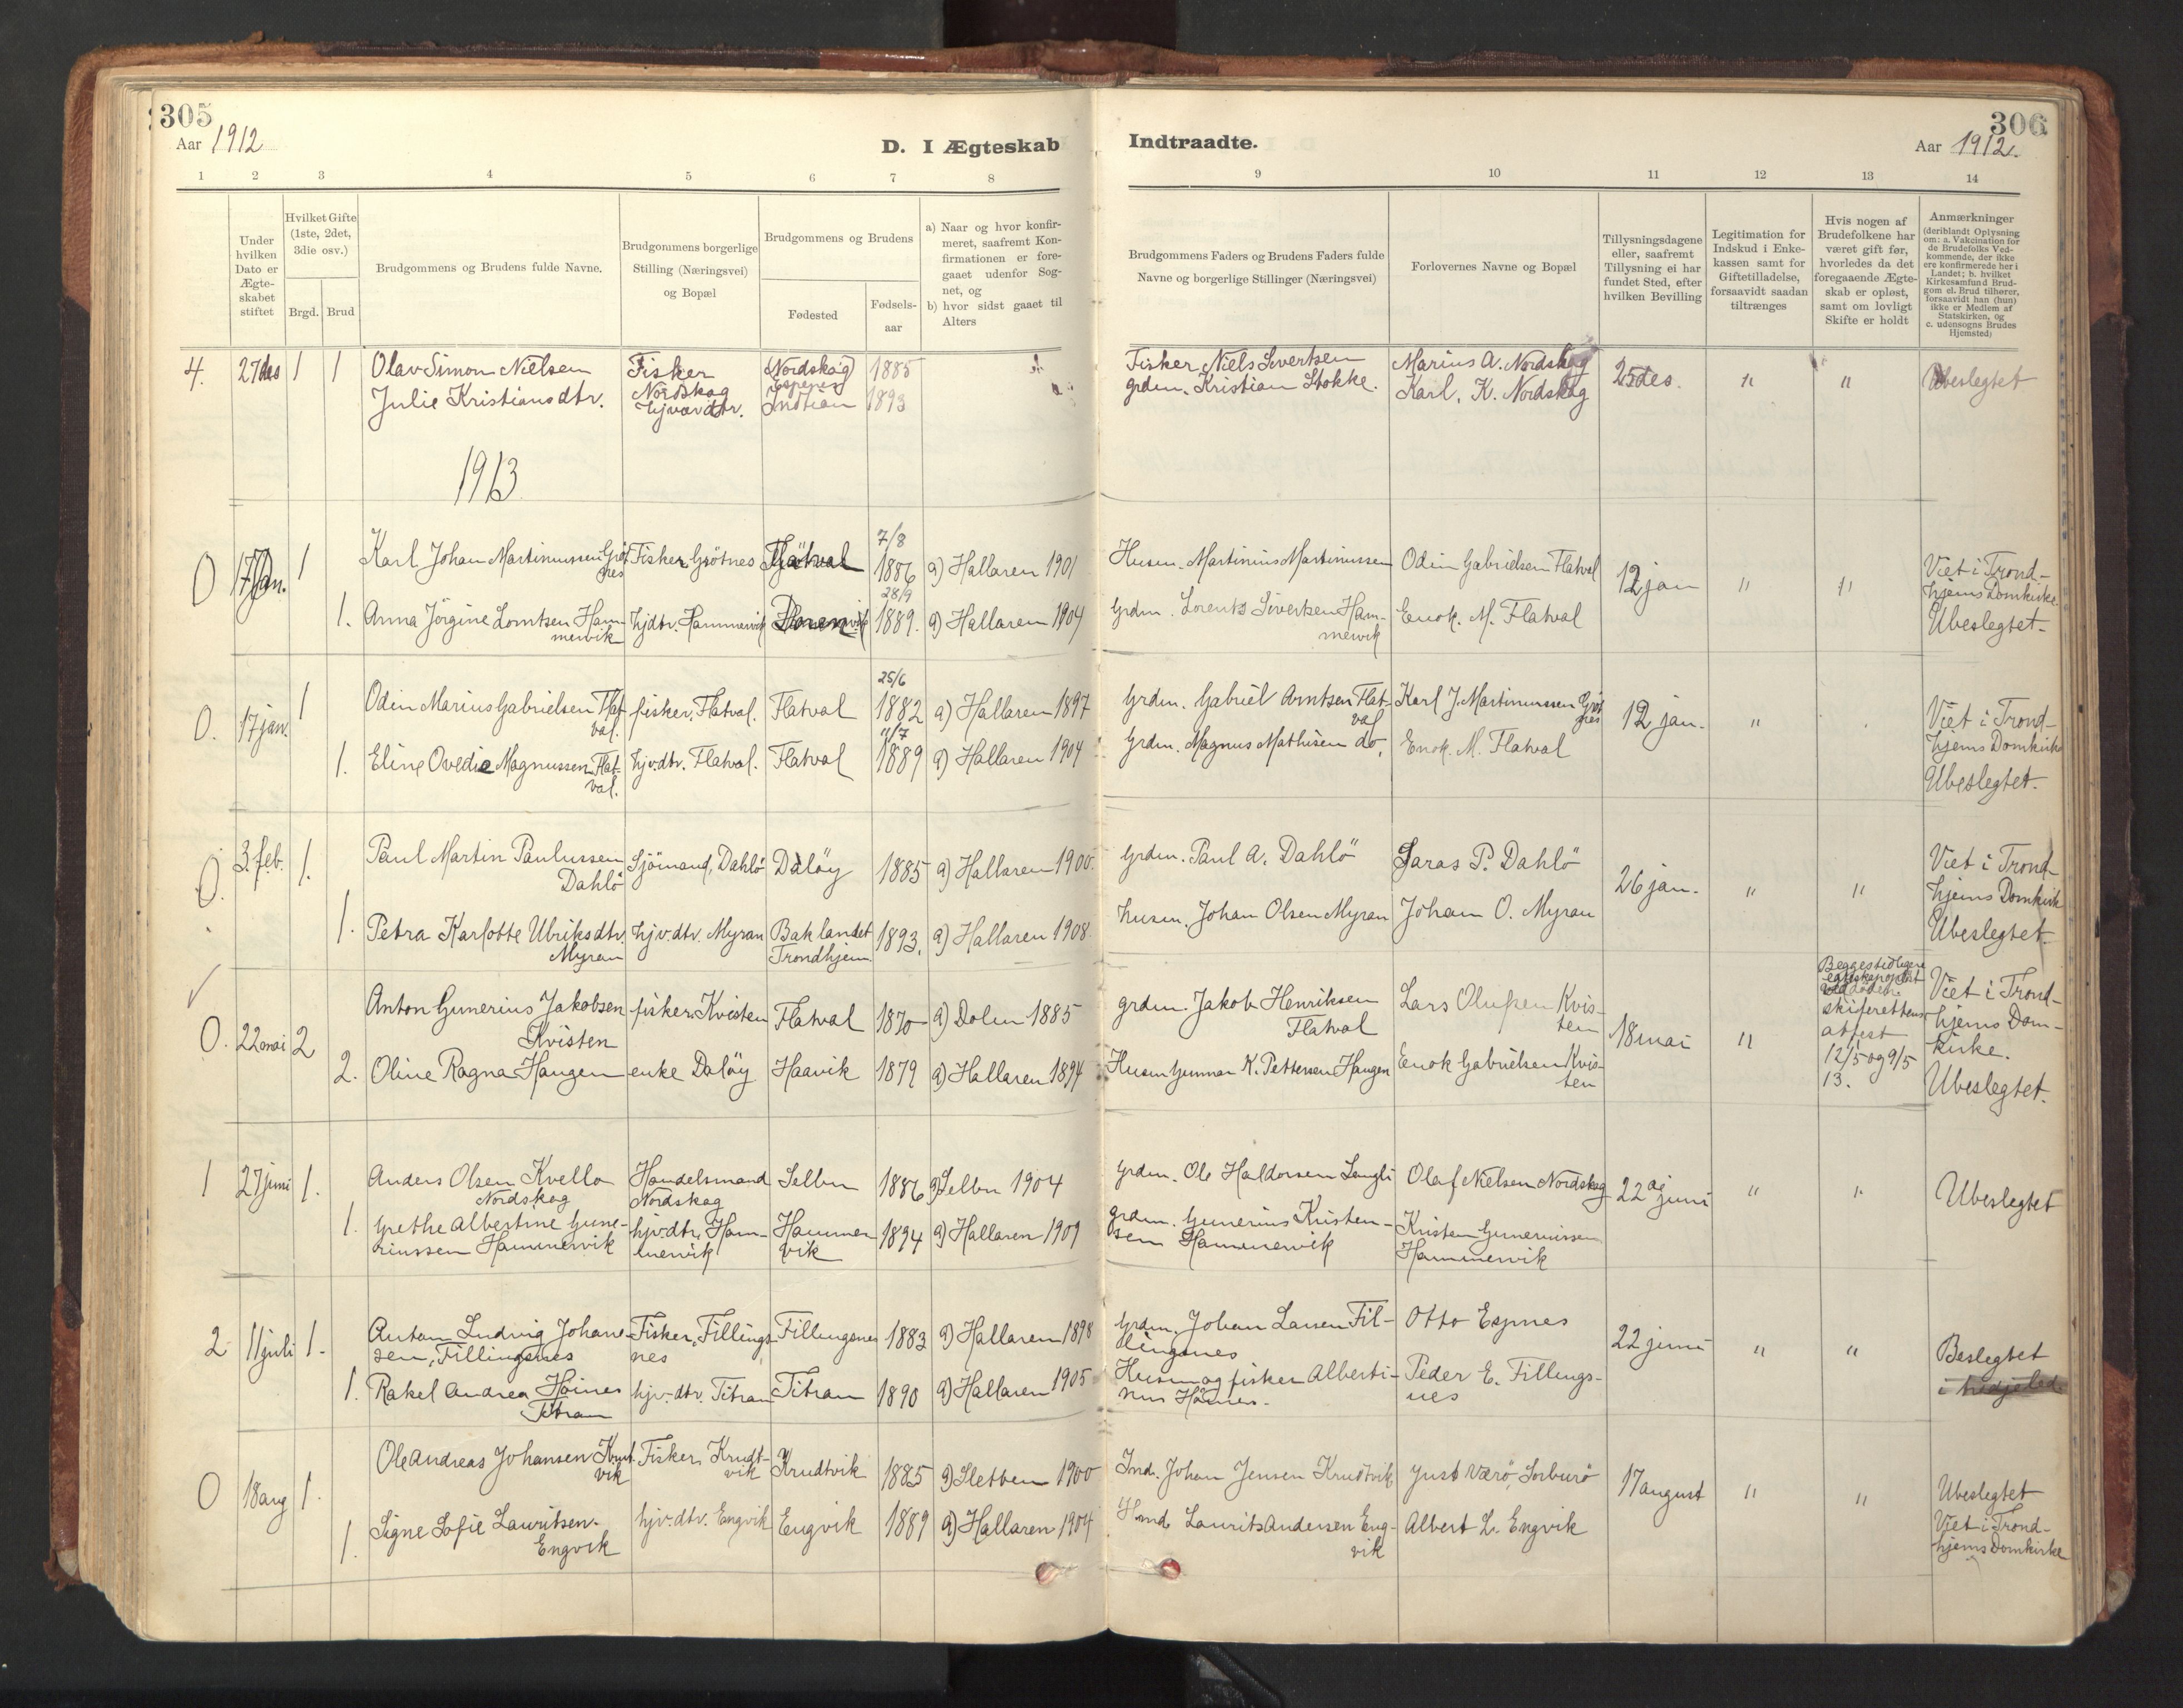 305
306
Aar 1912
Aar 1912.
D. I Ægteskab
Indtraadte.
1 2 3 4 5 6 7 8 9 10 11 12 13 14
Under hvilken Dato er Ægteskabet stiftet
Hvilket Gifte (1ste, 2det, 3die osv.)
Brgd. Brud
Brudgommens og Brudens fulde Navne.
Brudgommens borgerlige Stilling (Næringsvei) og Bopæl
Brudgommens og Brudens
Fødested
Fødsels-aar
a) Naar og hvor konfir-
meret, saafremt Kon-
firmationen er fore-
gaaet udenfor Sog-
net, og
b) hvor sidst gaaet til
Alters
Brudgommens Faders og Brudens Faders fulde
Navne og borgerlige Stillinger (Næringsvei)
Forlovernes Navne og Bopæl
Tillysningsdagene
eller, saafremt
Tillysning ei har
fundet Sted, efter
hvilken Bevilling
Legitimation for
Indskud i Enke-
kassen samt for
Giftetilladelse,
forsaavidt saadan
tiltrænges
Hvis nogen af
Brudefolkene har
været gift før,
hvorledes da det
foregaaende Ægte-
skab er opløst,
samt om lovligt
Skifte er holdt
Anmærkninger
(deriblandt Oplysning
om: a. Vakcination for
de Brudefolks Ved-
kommende, der ikke
ere konfirmerede her i
Landet; b. hvilket
Kirkesamfund Brud-
gom el. Brud tilhører,
forsaavidt han (hun)
ikke er Medlem af
Statskirken, og
c. udensogns Brudes
Hjemsted)
4. 27 des 1 1 Olav Simon Nielsen Fisker Nordskag (Nordskag) 1885 Fisker Niels Sivertsen Marius A. Nordskag 25 des. " " Ubeslegtet
Julie Kristiansdtr. hjvær dtr. 1893 grdm. Kristian Stokke. Karl. K. Nordskag
1913
0 17 jan. 1 Karl Johan Martinussen Grötnes Fisker Grötnes Flatval 7/8 1886 a) Hallaren 1901 Husm. Martinius Martinussen Odin Gabrielsen Flatval 12 jan " " Viet i Trond-
hjems Domkirke.
Ubeslegtet.
1. Anna Jörgine Lorntsen Hammervik hjdtr. Hammervik 28/9 1889. a) Hallaren 1904 Grdm. Lorents Sivertsen Hammervik Enok. M. Flatval
0. 17 jan. 1 Odin Marius Gabrielsen Flatval. fisker, Flatval. Flatval 25/6 1882 a) Hallaren 1897 Grdm. Gabriel Arntsen Flatval Karl J. Martinussen Grötnes 12 jan. " Viet i Trond-
hjems Domkirke
Ubeslegtet.
1. Eline Ovedie Magnussen Flatval. hjv.dtr. Flatval. Flatval 1889 a) Hallaren 1904 Grdm. Magnus Mathisen do. Enok. M. Flatval
0. 3 feb. 1. Paul Martin Paulussen Dahlö Sjömand, Dahlö Dalöy 1885 a) Hallaren 1900. Grdm. Paul A. Dahlö Saras P. Dahlö 26 jan. " " Viet i Trond-
hjems Domkirk
Ubeslegtet.
1. Petra Karlotte Ulriksdtr. Myran hjv.dtr. Myran Baklandet Trondhjem. 1893. a) Hallaren 1908 husm. Johan Olsen Myran Johan O. Myran
0. 22 mai 2 Anton Gunerius Jakobsen Kvisten fisker Kvisten Flatval 1870 a) Dolm 1885 grdm. Jakob Henriksen Flatval Lars Olufsen Kvisten 18 mai " Begges tidligere
skifterettens
attest
12/5 og 9/5
13.
Viet i Trond-
hjems Dom-
kirke.
Ubeslegtet.
2. Oline Ragna Haugen enke Dalöy Haavik 1879 a) Hallaren 1894 Husm Gunnar K. Pettersen Haugen Enok Gabrielsen Kvisten
1 27 juni 1. Anders Olsen Kvello Nordskag Handelsmand Nordskag Selbu 1886 a) Selbu 1904 Grdm. Ole Haldorsen Langli Olaf Nielsen Nordskag 22 juni " " Ubeslegtet
1. Grethe Albertine Gune-
riussen Hammervik hjv.dtr. Hammervik Hammervik 1894 a) Hallaren 1909 grdm. Gunerius Kristensen Hammervik Kristen Guneriussen Hammervik
2 11 juli 1. Anton Ludvig Johansen, Fillingsnes Fisker, Fillingsnes Fillingsnes 1883 a) Hallaren 1898 Grdm. Johan Larsen Fillingsnes Otto Espnes 22 juni " " Beslegtet
i tredje led.
1. Rakel Andrea Höines Titran hjv.dtr. Titran Titran 1890 a) Hallaren 1905 Husm og fisker Albertinus Höines. Peder E. Fillingsnes
0 18 aug 1. Ole Andreas Johansen Krutvik Fisker, Krudtvik Krudtvik 1885 a) Sletten 1900 Ind. Johan Jensen Krudtvik Just Værö, Sorburö 17 august " " Ubeslegtet
Viet i Trond-
hjems Domkirke
1. Signe Sofie Lauritsen. Engvik hjv.dtr. Engvik Engvik 1889 a) Hallaren 1904 Laurits Andersen Engvik Albert L. Engvik